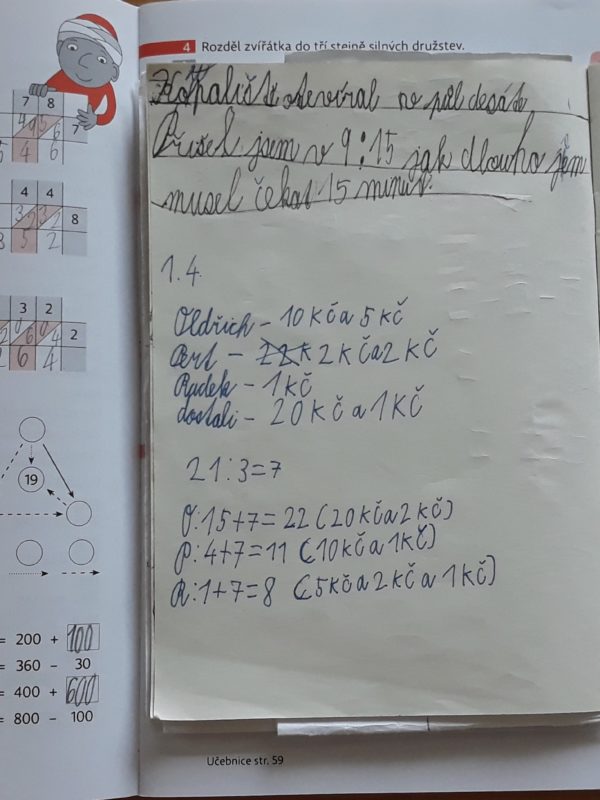 4 Rozděl zvířátka do tří stejně silných družstev.
Koupaliště otevíral v půl desáté.
Přišel jsem v 9:15 jak dlouho jsem
musel čekat 15 minut.
1.4.
Oldřich - 10 Kč a 5 Kč
Art - 2 Kč a 2 Kč
Radek - 1 Kč
dostali - 20 Kč a 1 Kč
21:3=7
O:15+7=22 (20 Kč a 2 Kč)
P:4+7=11 (10 Kč a 1 Kč)
R:1+7=8 (5 Kč a 2 Kč a 1 Kč)
7 8
7
4 6
4 4
8
5 2
3 2
2
6 4
19
= 200 + 100
= 360 - 30
= 400 + 600
= 800 - 100
Učebnice str. 59